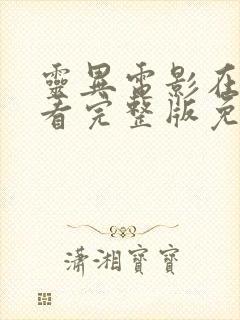 靈異電影在
看完整版免
瀟湘寶寶